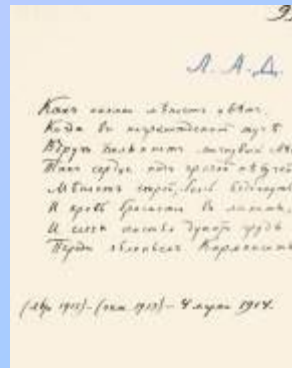 Л. А. Д.
Какъ океанъ мѣняетъ цвѣтъ,
Когда въ нагроможденной тучѣ
Вдругъ полыхнетъ мигнувшій свѣ
Такъ сердце подъ грозой пѣвучей
Мѣняетъ строй, боясь вздохнуть,
И кровь бросается въ ланиты,
И слезы счастья душатъ грудь
Передъ явленьемъ Карменситы
(окт 1913) – 4 марта 1914.